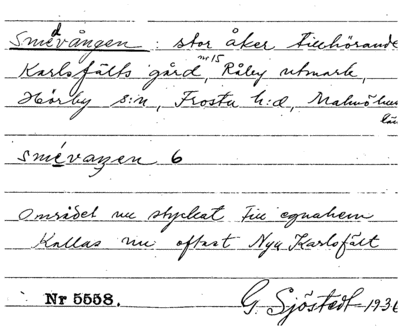 Smedvången : stor åker tillhörande
Karlsfälts gård, nr 15 Råby utmark,
Hörby s:n, Frosta h:d, Malmöhus
län
smévaŋen 6
Området nu styckat till egnahem
Kallas nu oftast Nya Karlsfält
Nr 5558. G. Sjöstedt - 1936